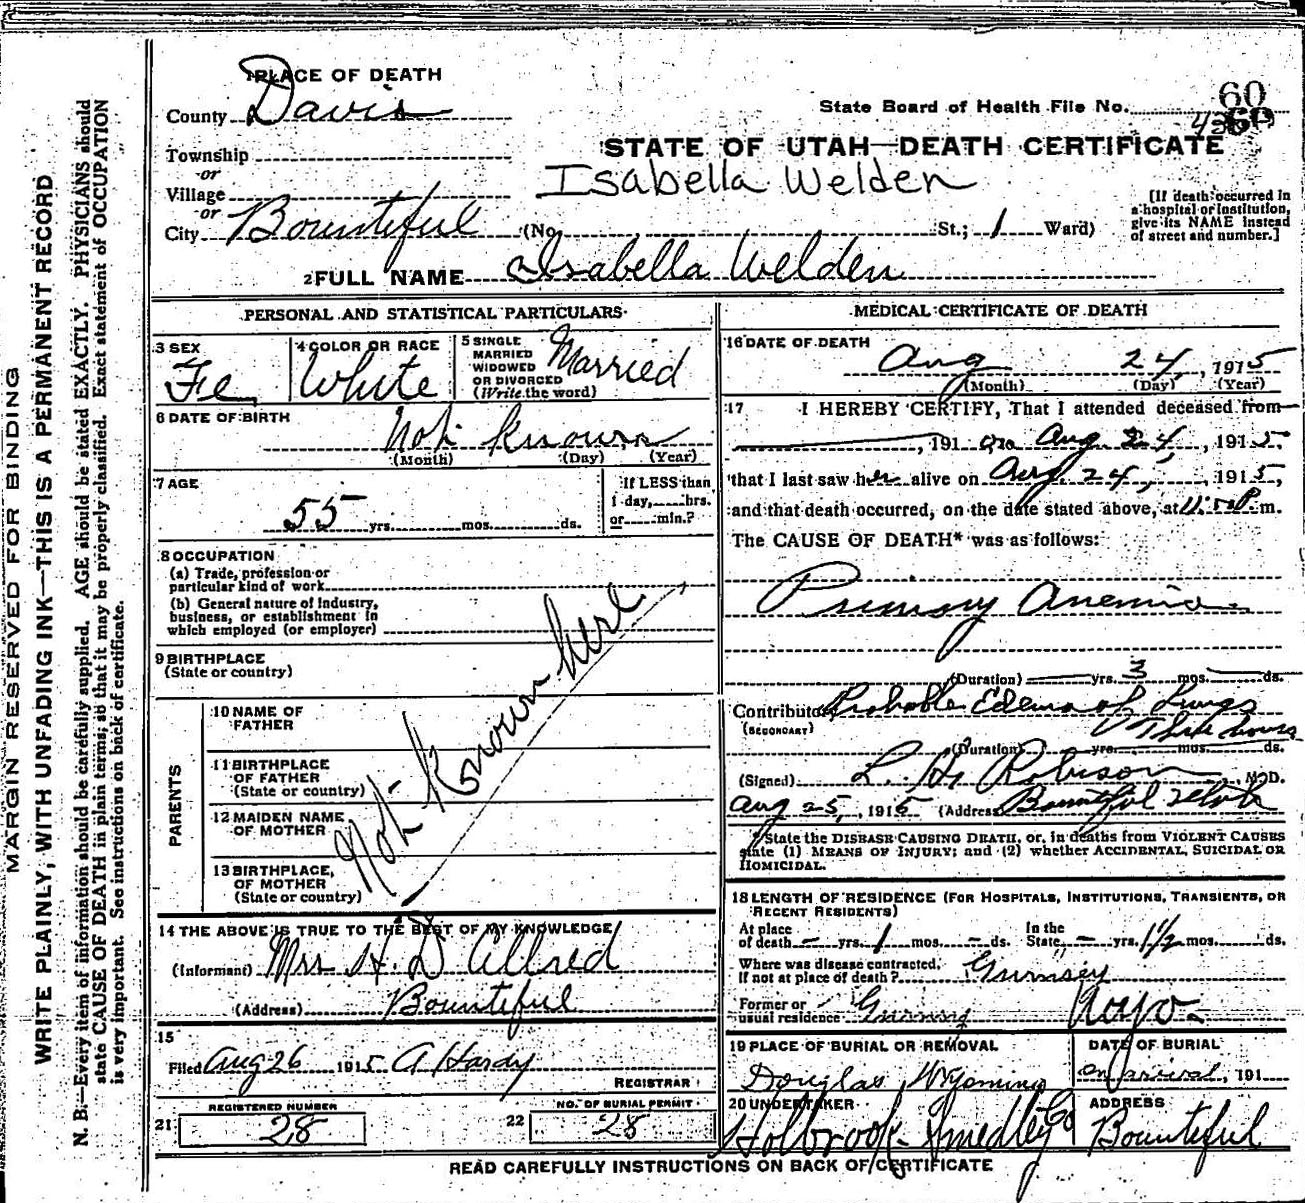 MARGIN RESERVED FOR BINDING
WRITE PLAINLY, WITH UNFADING INK—THIS IS A PERMANENT RECORD
N. B.—Every item of information should be carefully supplied. AGE should be stated EXACTLY. PHYSICIANS should
state CAUSE OF DEATH in plain terms, so that it may be properly classified. Exact statement of OCCUPATION
is very important. See instructions on back of certificate.
1 PLACE OF DEATH
County Davis
Township
or
Village
or
City Bountiful (No. St.; 1 Ward)
State Board of Health File No. 60
STATE OF UTAH—DEATH CERTIFICATE
Isabella Welden
[If death occurred in
a hospital or institution,
give its NAME instead
of street and number.]
2 FULL NAME Isabella Welden
PERSONAL AND STATISTICAL PARTICULARS
3 SEX
Fe
4 COLOR OR RACE
White
5 SINGLE
MARRIED
WIDOWED
OR DIVORCED
(Write the word)
Married
6 DATE OF BIRTH
Not Known
(Month) (Day) (Year)
7 AGE
55 yrs. mos. ds.
If LESS than
1 day, hrs.
or min.?
8 OCCUPATION
(a) Trade, profession or
particular kind of work
(b) General nature of industry,
business, or establishment in
which employed (or employer)
9 BIRTHPLACE
(State or country)
PARENTS
10 NAME OF
FATHER
11 BIRTHPLACE
OF FATHER
(State or country)
12 MAIDEN NAME
OF MOTHER
13 BIRTHPLACE,
OF MOTHER
(State or country)
Not Known here
14 THE ABOVE IS TRUE TO THE BEST OF MY KNOWLEDGE
(Informant) Mrs H. D Allred
(Address) Bountiful
15
Filed Aug 26 1915 A Hardy
REGISTRAR
21
REGISTERED NUMBER
28
22
NO. OF BURIAL PERMIT
28
MEDICAL CERTIFICATE OF DEATH
16 DATE OF DEATH
Aug 24, 1915
(Month) (Day) (Year)
17 I HEREBY CERTIFY, That I attended deceased from
, 191 to Aug 24, 1915
that I last saw her alive on Aug. 24, 1915,
and that death occurred, on the date stated above, at P. m.
The CAUSE OF DEATH* was as follows:
Anemia
(Duration) yrs. 3 mos. ds.
Contributory Probable Edema of Lungs
(SECONDARY)
Three hours
(Duration) yrs. mos. ds.
(Signed) L. Robison, M.D.
Aug 25, 1915 (Address) Bountiful Utah
*State the DISEASE CAUSING DEATH, or, in deaths from VIOLENT CAUSES
state (1) MEANS OF INJURY; and (2) whether ACCIDENTAL, SUICIDAL OR
HOMICIDAL.
18 LENGTH OF RESIDENCE (FOR HOSPITALS, INSTITUTIONS, TRANSIENTS, OR
RECENT RESIDENTS)
At place
of death – yrs. 1 mos. – ds.
In the
State – yrs. 1½ mos. ds.
Where was disease contracted,
if not at place of death? Gurnsey
Former or
usual residence Gurnsy Wyo-
19 PLACE OF BURIAL OR REMOVAL
Douglas, Wyoming
DATE OF BURIAL
on arival, 191
20 UNDERTAKER
Holbrook-Smedley Co
ADDRESS
Bountiful
READ CAREFULLY INSTRUCTIONS ON BACK OF CERTIFICATE